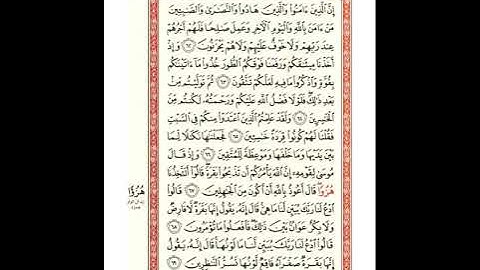 إِنَّ ٱلَّذِينَ ءَامَنُوا۟ وَٱلَّذِينَ هَادُوا۟ وَٱلنَّصَـٰرَىٰ وَٱلصَّـٰبِـِٔينَ
مَنْ ءَامَنَ بِٱللَّهِ وَٱلْيَوْمِ ٱلْـَٔاخِرِ وَعَمِلَ صَـٰلِحًا فَلَهُمْ أَجْرُهُمْ
عِندَ رَبِّهِمْ وَلَا خَوْفٌ عَلَيْهِمْ وَلَا هُمْ يَحْزَنُونَ ٦٢ وَإِذْ
أَخَذْنَا مِيثَـٰقَكُمْ وَرَفَعْنَا فَوْقَكُمُ ٱلطُّورَ خُذُوا۟ مَآ ءَاتَيْنَـٰكُم
بِقُوَّةٍ وَٱذْكُرُوا۟ مَا فِيهِ لَعَلَّكُمْ تَتَّقُونَ ٦٣ ثُمَّ تَوَلَّيْتُم مِّنۢ
بَعْدِ ذَٰلِكَ فَلَوْلَا فَضْلُ ٱللَّهِ عَلَيْكُمْ وَرَحْمَتُهُۥ لَكُنتُم مِّنَ
ٱلْخَـٰسِرِينَ ٦٤ وَلَقَدْ عَلِمْتُمُ ٱلَّذِينَ ٱعْتَدَوْا۟ مِنكُمْ فِى ٱلسَّبْتِ
فَقُلْنَا لَهُمْ كُونُوا۟ قِرَدَةً خَـٰسِـِٔينَ ٦٥ فَجَعَلْنَـٰهَا نَكَـٰلًا لِّمَا
بَيْنَ يَدَيْهَا وَمَا خَلْفَهَا وَمَوْعِظَةً لِّلْمُتَّقِينَ ٦٦ وَإِذْ قَالَ
مُوسَىٰ لِقَوْمِهِۦٓ إِنَّ ٱللَّهَ يَأْمُرُكُمْ أَن تَذْبَحُوا۟ بَقَرَةً قَالُوٓا۟ أَتَتَّخِذُنَا
هُزُؤًا قَالَ أَعُوذُ بِٱللَّهِ أَنْ أَكُونَ مِنَ ٱلْجَـٰهِلِينَ ٦٧ قَالُوا۟
ٱدْعُ لَنَا رَبَّكَ يُبَيِّن لَّنَا مَا هِىَ قَالَ إِنَّهُۥ يَقُولُ إِنَّهَا بَقَرَةٌ لَّا فَارِضٌ
وَلَا بِكْرٌ عَوَانٌۢ بَيْنَ ذَٰلِكَ فَٱفْعَلُوا۟ مَا تُؤْمَرُونَ ٦٨
قَالُوا۟ ٱدْعُ لَنَا رَبَّكَ يُبَيِّن لَّنَا مَا لَوْنُهَا قَالَ إِنَّهُۥ يَقُولُ
إِنَّهَا بَقَرَةٌ صَفْرَآءُ فَاقِعٌ لَّوْنُهَا تَسُرُّ ٱلنَّـٰظِرِينَ ٦٩
هُزُؤًا